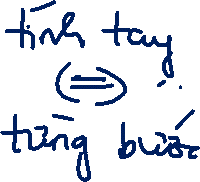 tính tay
(=)
từng bước